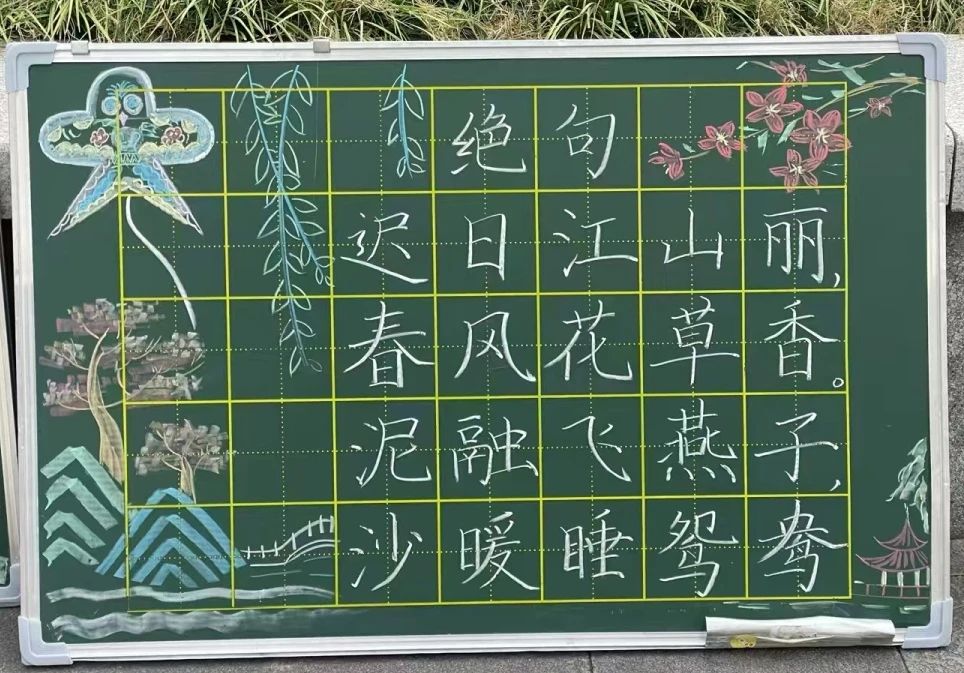 绝句
迟日江山丽,
春风花草香。
泥融飞燕子,
沙暖睡鸳鸯